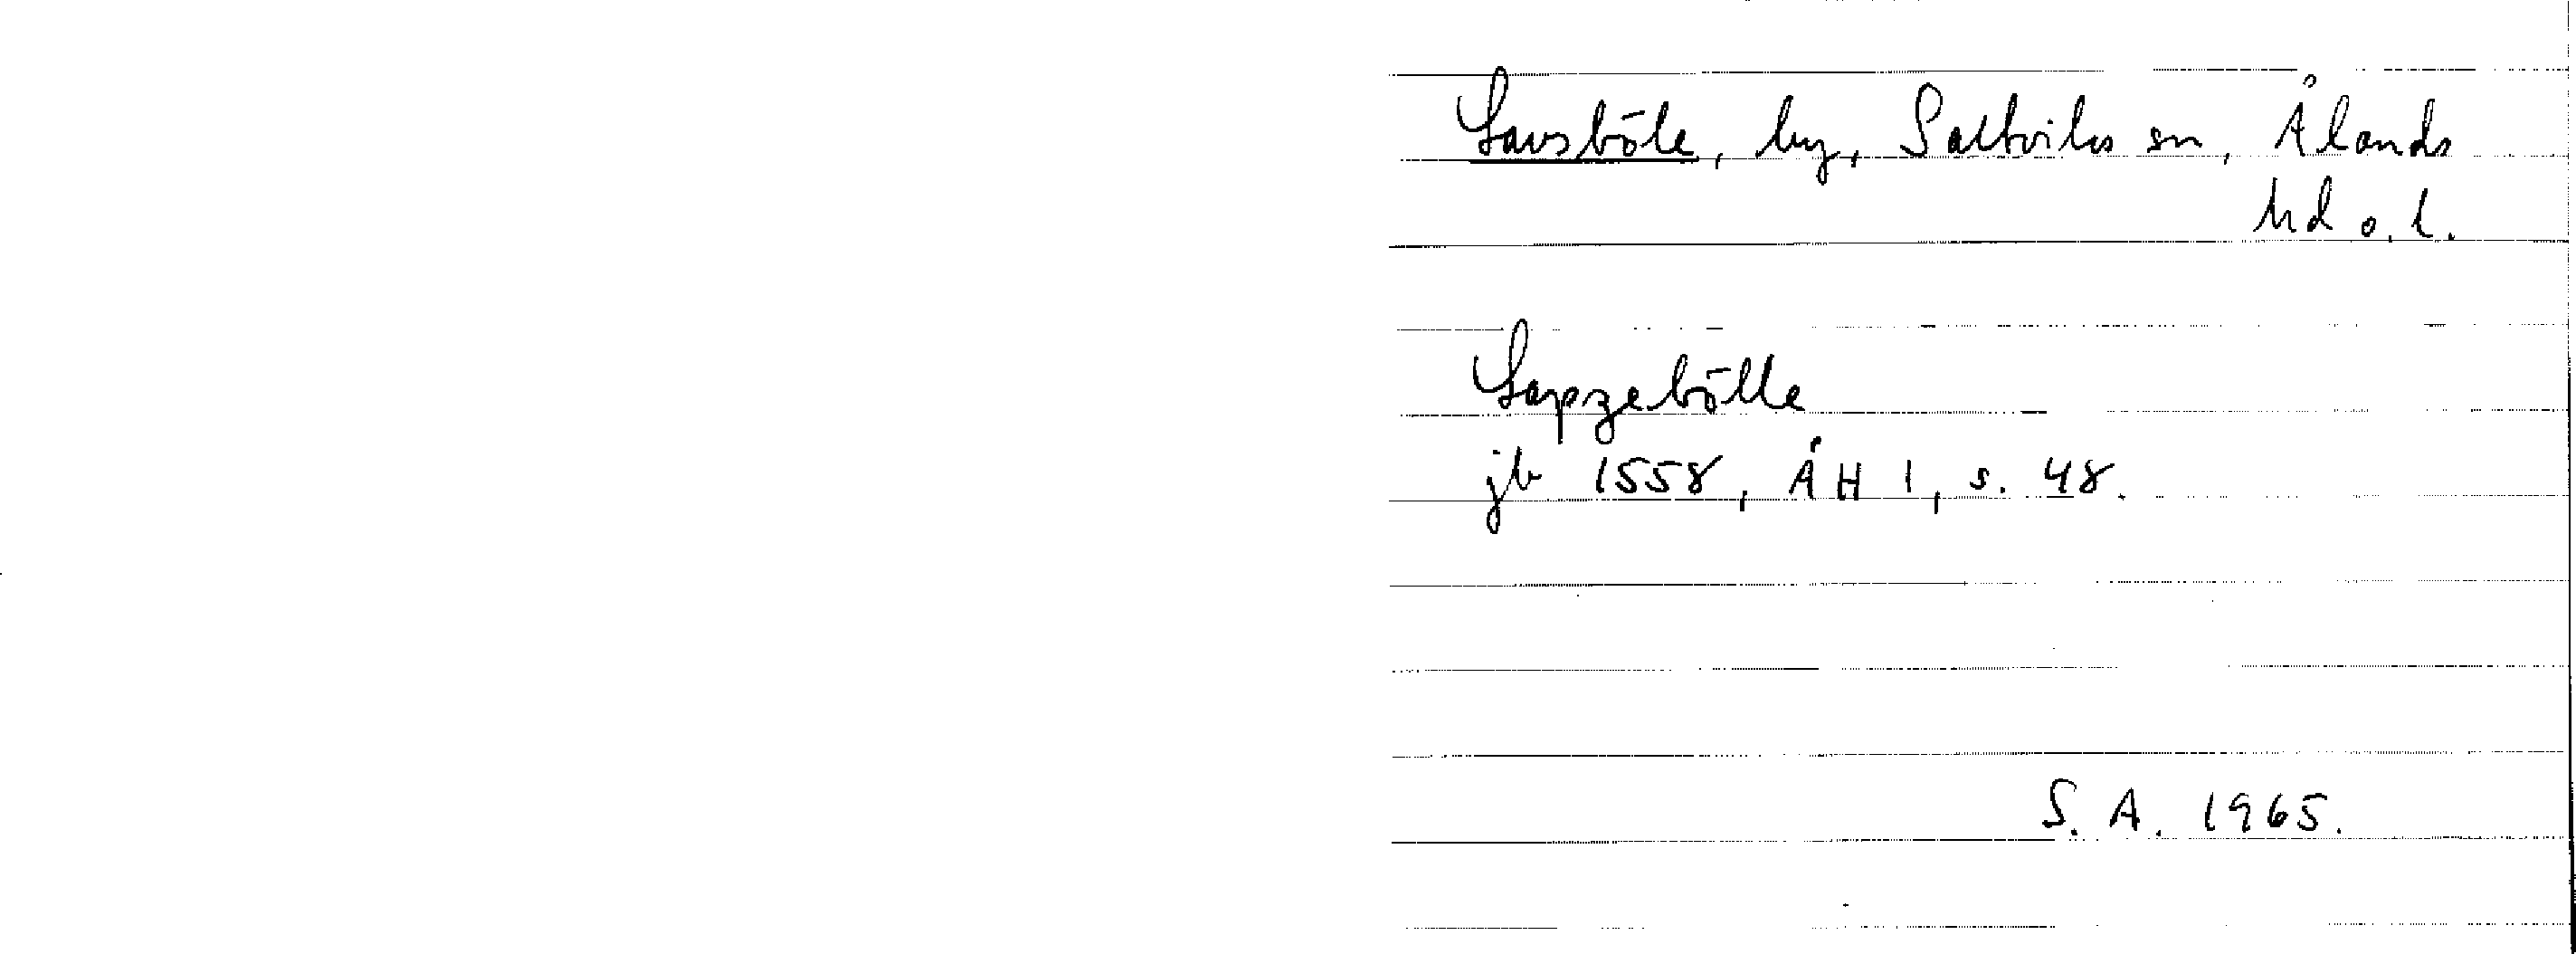 Lavsböle, by, Saltviks sn, Ålands
hd o. l.
Lapzebölle
jb 1558, ÅH 1, s. 48.
S. A. 1965.